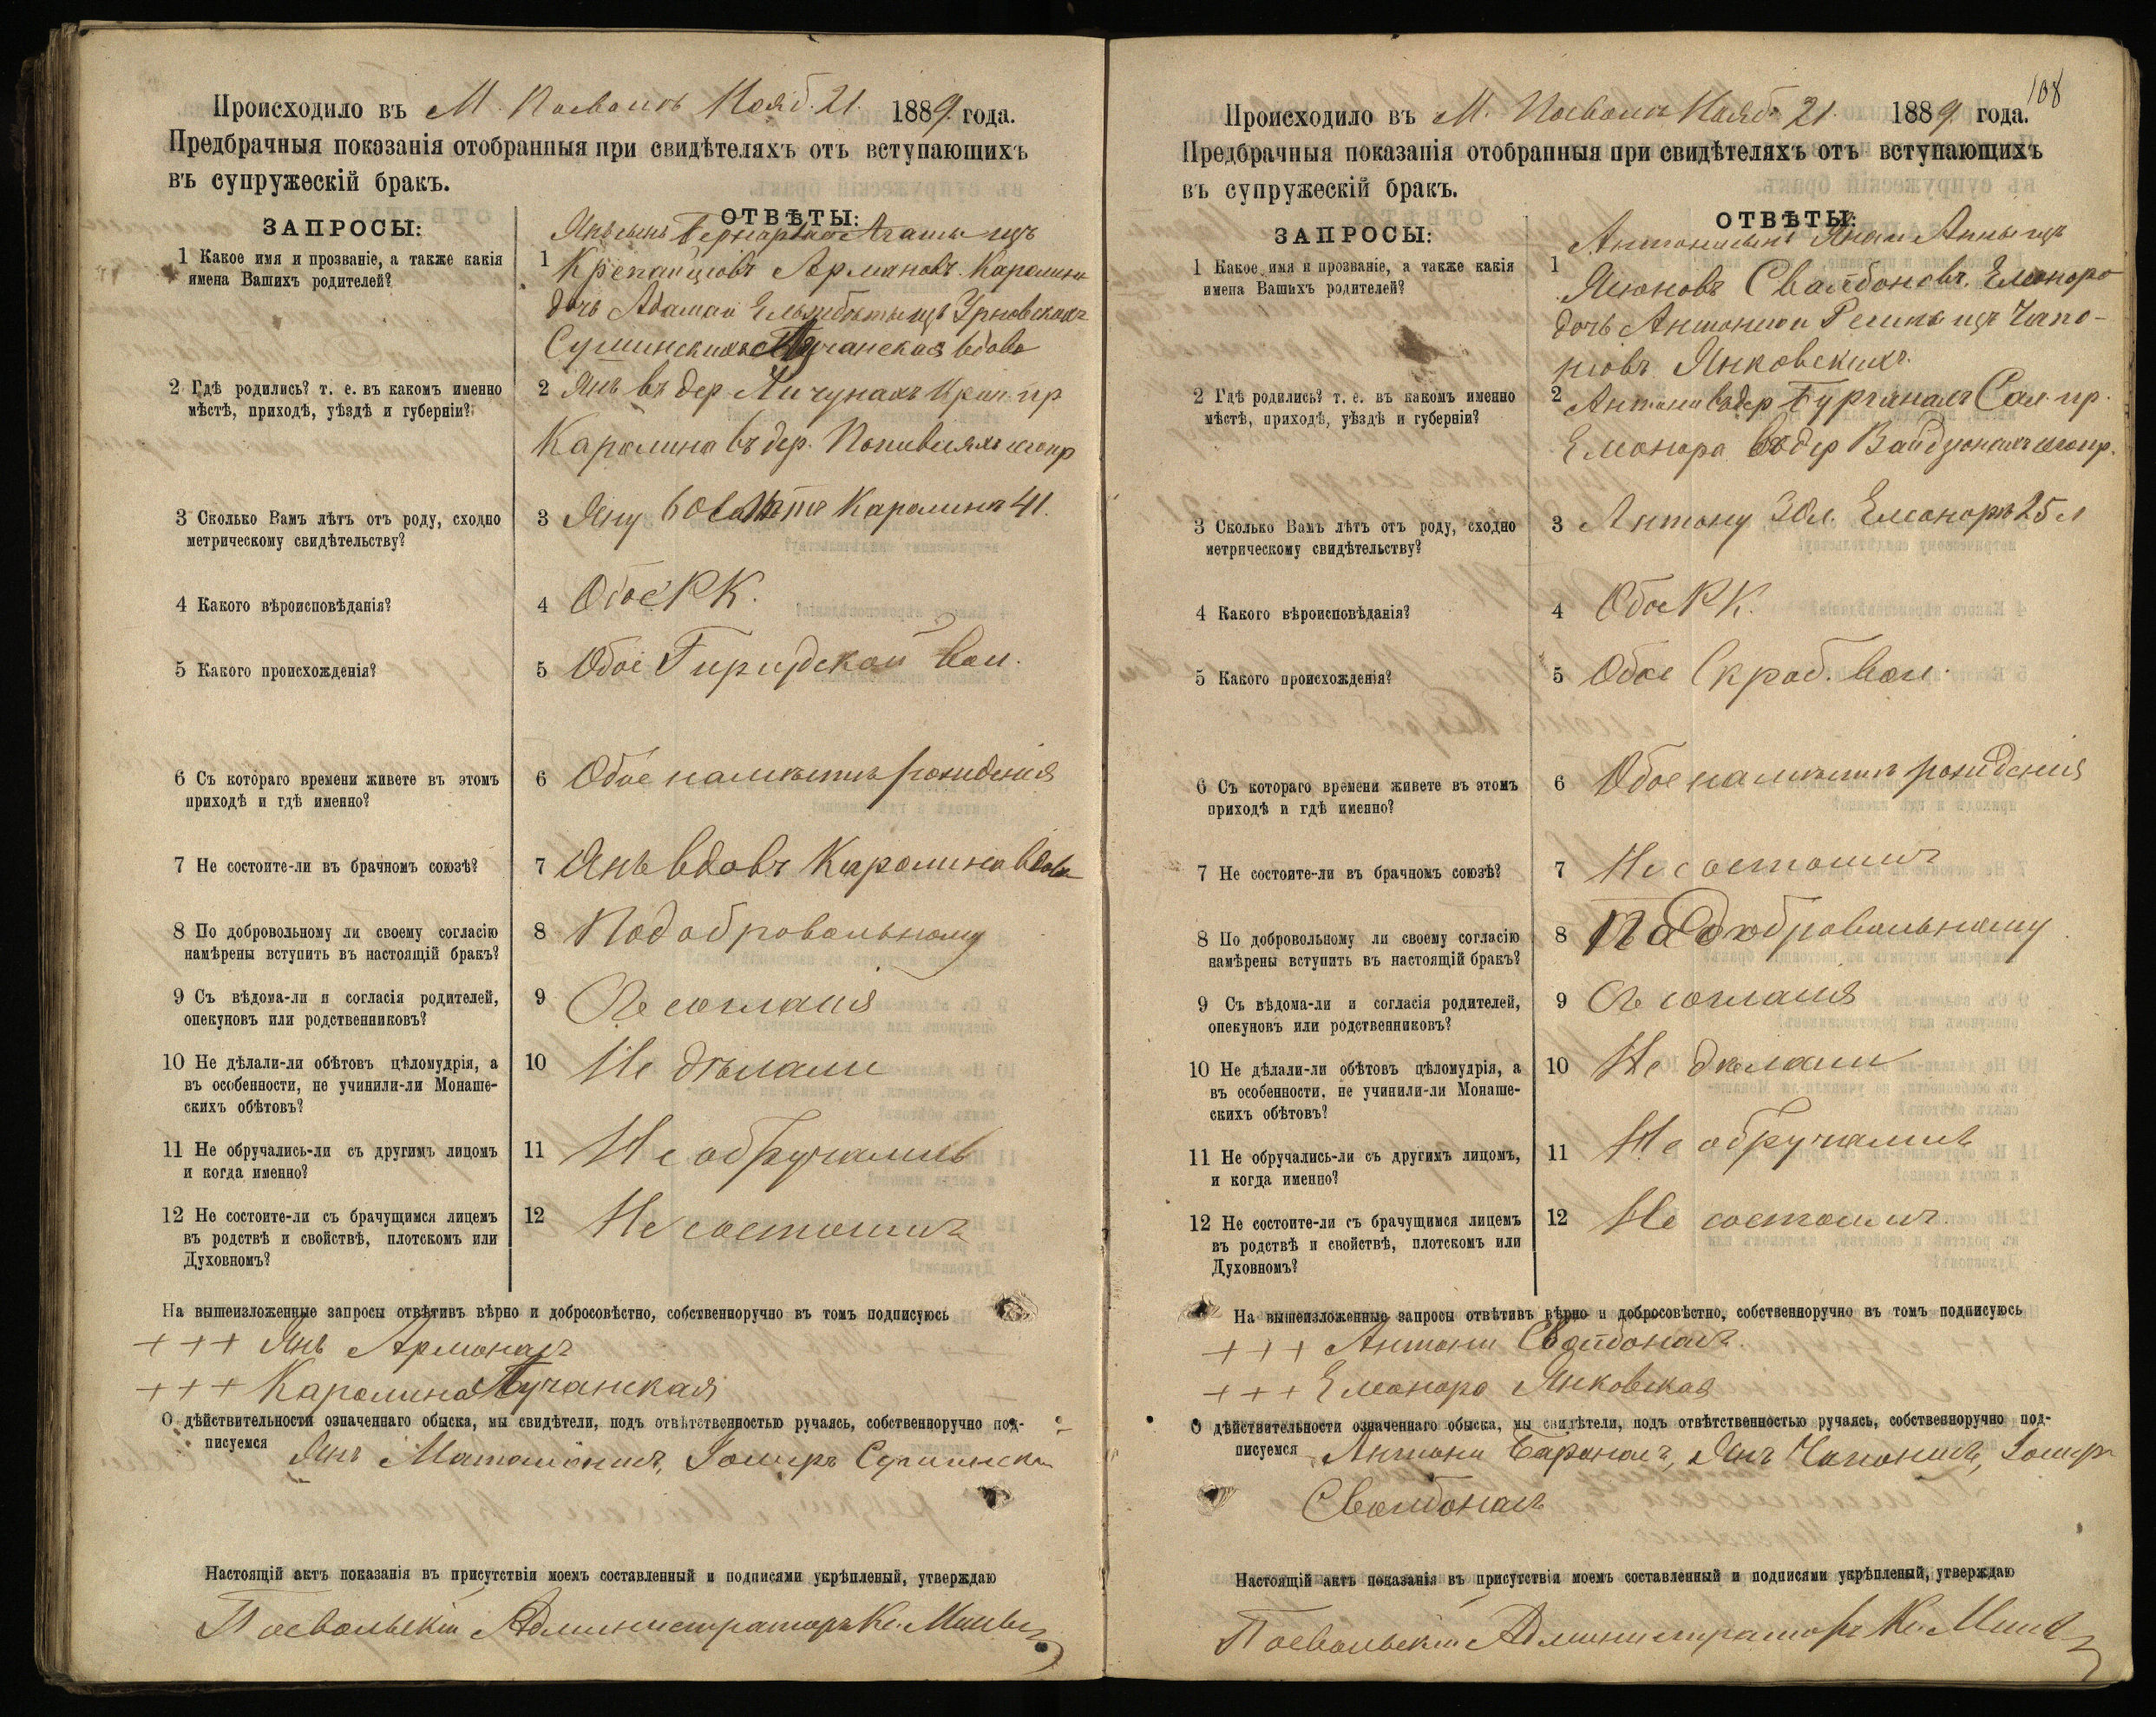 Происходило въ М. Посволь Нояб. 21. 1889 года.
Предбрачныя показанія отобранныя при свидѣтеляхъ отъ вступающихъ
въ супружескій бракъ.
ЗАПРОСЫ:
ОТВѢТЫ:
1 Какое имя и прозваніе, а также какія
имена Вашихъ родителей?
1 Янъ сынъ Бернарда и Агаты изъ
Армановъ Каролина
дочь Адама и Ельжбеты изъ
вдова
2 Гдѣ родились? т. е. въ какомъ именно
мѣстѣ, приходѣ, уѣздѣ и губерніи?
2 Янъ въ дер пр
Каролина въ дер.
3 Сколько Вамъ лѣтъ отъ роду, сходно
метрическому свидѣтельству?
3 Яну 60 Каролинѣ 41.
4 Какого вѣроисповѣданія?
4 Обое РК.
5 Какого происхожденія?
5 Обое вол.
6 Съ котораго времени живете въ этомъ
приходѣ и гдѣ именно?
6 Обое на мѣстѣ рожденія
7 Не состоите-ли въ брачномъ союзѣ?
7 Янъ вдовъ Каролина вдова
8 По добровольному ли своему согласію
намѣрены вступить въ настоящій бракъ?
8 По добровольному
9 Съ вѣдома-ли и согласія родителей,
опекуновъ или родственниковъ?
9 Съ согласія
10 Не дѣлали-ли обѣтовъ цѣломудрія, а
въ особенности, не учинили-ли Монаше-
скихъ обѣтовъ?
10 Не дѣлали
11 Не обручались-ли съ другимъ лицомъ
и когда именно?
11 Не обручались
12 Не состоите-ли съ брачущимся лицемъ
въ родствѣ и свойствѣ, плотскомъ или
Духовномъ?
12 Не состоимъ
На вышеизложенные запросы отвѣтивъ вѣрно и добросовѣстно, собственноручно въ томъ подписуюсь
+++ Янъ Армонасъ
+++ Каролина
О дѣйствительности означеннаго обыска, мы свидѣтели, подъ отвѣтственностью ручаясь, собственноручно под-
писуемся Янъ
Настоящій актъ показанія въ присутствіи моемъ составленный и подписями укрѣпленый, утверждаю
Посвольскій Администраторъ Кс.
108
Происходило въ М. Посволь Нояб. 21. 1889 года.
Предбрачныя показанія отобранныя при свидѣтеляхъ отъ вступающихъ
въ супружескій бракъ.
ЗАПРОСЫ:
ОТВѢТЫ:
1 Какое имя и прозваніе, а также какія
имена Вашихъ родителей?
1 Антони сынъ Яна и Анны изъ
Елеонора
дочь Антонія и изъ Чапо-
новъ Янковскихъ.
2 Гдѣ родились? т. е. въ какомъ именно
мѣстѣ, приходѣ, уѣздѣ и губерніи?
2 Антони въ дер пр.
Елеонора въ дер
3 Сколько Вамъ лѣтъ отъ роду, сходно
метрическому свидѣтельству?
3 Антону 30 л. Елеонорѣ 25 л
4 Какого вѣроисповѣданія?
4 Обое РК.
5 Какого происхожденія?
5 Обое Скроб. вол.
6 Съ котораго времени живете въ этомъ
приходѣ и гдѣ именно?
6 Обое на мѣстѣ рожденія
7 Не состоите-ли въ брачномъ союзѣ?
7 Не состоимъ
8 По добровольному ли своему согласію
намѣрены вступить въ настоящій бракъ?
8 По добровольному
9 Съ вѣдома-ли и согласія родителей,
опекуновъ или родственниковъ?
9 Съ согласія
10 Не дѣлали-ли обѣтовъ цѣломудрія, а
въ особенности, не учинили-ли Монаше-
скихъ обѣтовъ?
10 Не дѣлали
11 Не обручались-ли съ другихъ лицомъ,
и когда именно?
11 Не обручались
12 Не состоите-ли съ брачущимся лицемъ
въ родствѣ и свойствѣ, плотскомъ или
Духовномъ?
12 Не состоимъ
На вышеизложенные запросы отвѣтивъ вѣрно и добросовѣстно, собственноручно въ томъ подписуюсь
+++ Антони
+++ Елеонора Янковская
О дѣйствительности означеннаго обыска, мы свидѣтели, подъ отвѣтственностью ручаясь, собственноручно под-
писуемся Антони Баронасъ, Янъ
Настоящій актъ показанія въ присутствія моемъ составленный и подписями укрѣпленый, утверждаю
Посвольскій Администраторъ Кс.